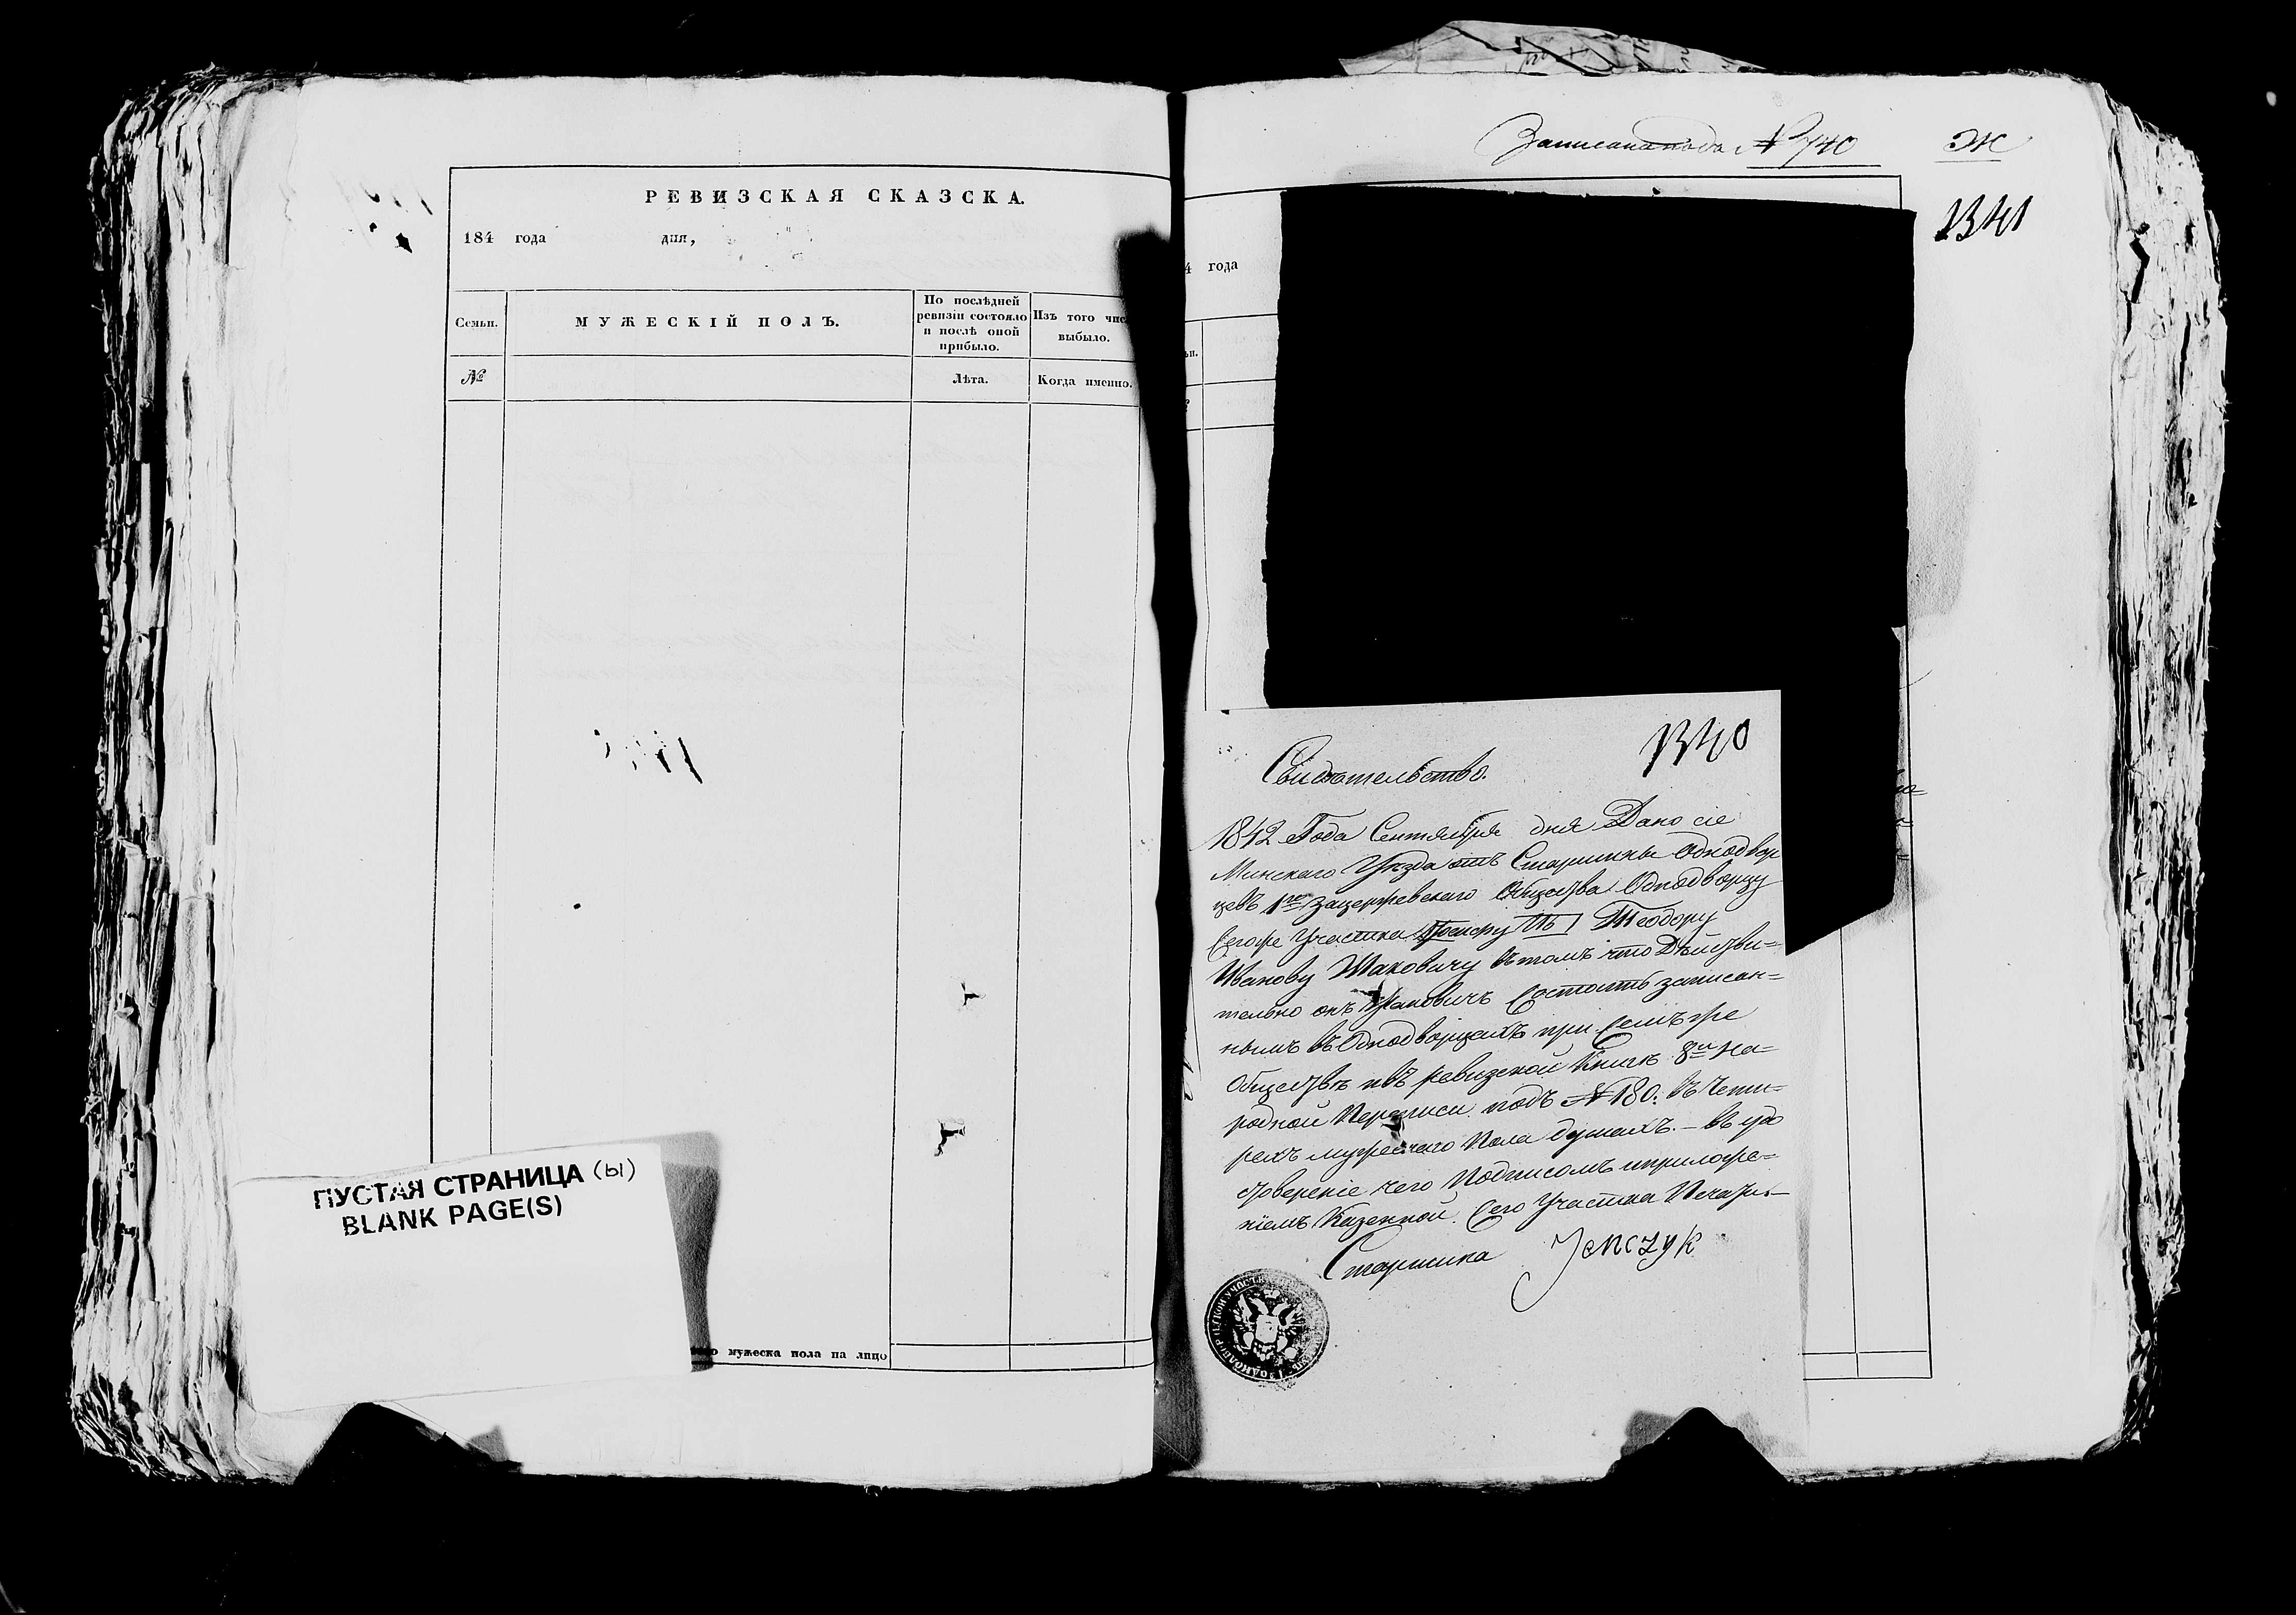 РЕВИЗСКАЯ СКАЗСКА.
184 года дня,
Семьи.
МУЖЕСКІЙ ПОЛЪ.
По послѣдней
ревизіи состояло
и послѣ оной
прибыло.
Изъ того чис
выбыло.
№
Лѣта.
Когда именно.
ПУСТАЯ СТРАНИЦА (Ы)
BLANK PAGE(S)
мужеска пола на лицо
№ 740
1341
4 года
1340
Свидѣтельство.
1842 Года Сентября дня Дано сіе
Минскаго Уѣзда отъ Старшины Однодвор
цевъ 1го Общества Однодворцу
Сегоже Участка Теодору
Иванову въ томъ что Дѣйстви=
тельно онъ Состоитъ записан=
нымъ въ Однодворцахъ при Семъ же
Обществѣ ивъ ревизской Книгѣ 8й На=
родной Переписи подъ № 180: въ Четы=
рехъ мужескаго Пола душахъ. – въ удо
стовереніе чего Подписомъ иприложе=
ніемъ Казенной Сего Участка Печати.
Старшина Jenczyk